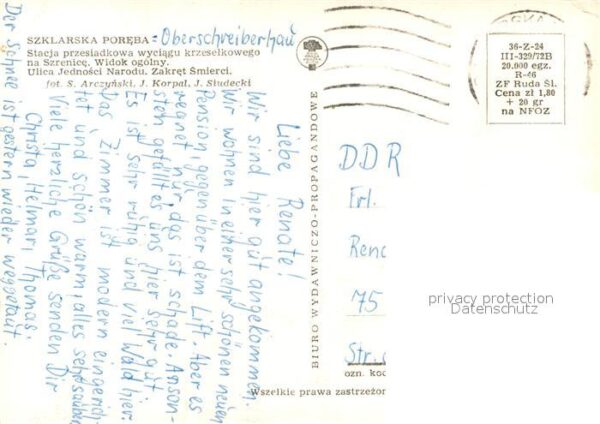 SZKLARSKA PORĘBA = Oberschreiberhau
Stacja przesiadkowa wyciągu krzesełkowego
na Szrenicę. Widok ogólny.
Ulica Jedności Narodu. Zakręt Śmierci.
fot. S. Arczyński, J. Korpal, J. Siudecki
Liebe Renate!
Wir sind hier gut angekommen.
Wir wohnen in einer sehr schönen neuen
Pension, gegenüber dem Lift. Aber es
regnet nur, das ist schade. Anson-
sten gefällt es uns hier sehr gut
Es ist sehr ruhig und viel Wald hier.
Das Zimmer ist modern eingerich-
tet und schön warm, alles sehr sauber
Viele herzliche Grüße senden Dir
Christa, Helmar, Thomas.
Der Schnee ist gestern wieder weggetaut.
BIURO WYDAWNICZO-PROPAGANDOWE
36-Z-24
III-329/72B
20.000 egz.
R-46
ZF Ruda Śl.
Cena zł 1,80
+ 20 gr
na NFOZ
DDR
Frl.
Rena
75
Str.
ozn. kod
Wszelkie prawa zastrzeżon
privacy protection
Datenschutz